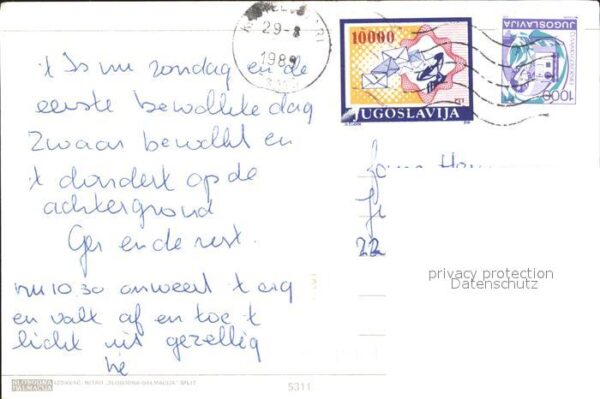 't Is nu zondag en de
eerste bewolkte dag
Zwaar bewolkt en
't dondert op de
achtergrond
Ger en de rest.
nu 10.30 onweert 't erg
en valt af en toe 't
licht uit gezellig
hè
29-
1989
10000
JUGOSLAVIJA
JUGOSLAVIJA
1000
22
privacy protection
Datenschutz
SLOBODNA
DALMACIJA
IZDAVAČ: NIŠRO „SLOBODNA DALMACIJA" SPLIT
5311